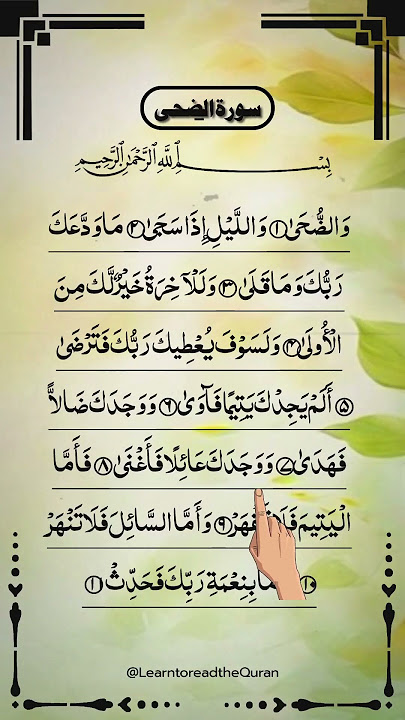 سورة الضحى
بِسْمِ اللَّهِ الرَّحْمَٰنِ الرَّحِيمِ
وَالضُّحَىٰ ١ وَاللَّيْلِ إِذَا سَجَىٰ ٢ مَا وَدَّعَكَ
رَبُّكَ وَمَا قَلَىٰ ٣ وَلَلْآخِرَةُ خَيْرٌ لَّكَ مِنَ
الْأُولَىٰ ٤ وَلَسَوْفَ يُعْطِيكَ رَبُّكَ فَتَرْضَىٰ
٥ أَلَمْ يَجِدْكَ يَتِيمًا فَآوَىٰ ٦ وَوَجَدَكَ ضَالًّا
فَهَدَىٰ ٧ وَوَجَدَكَ عَائِلًا فَأَغْنَىٰ ٨ فَأَمَّا
الْيَتِيمَ فَلَا تَقْهَرْ ٩ وَأَمَّا السَّائِلَ فَلَا تَنْهَرْ
١٠ بِنِعْمَةِ رَبِّكَ فَحَدِّثْ ١١
@LearntoreadtheQuran